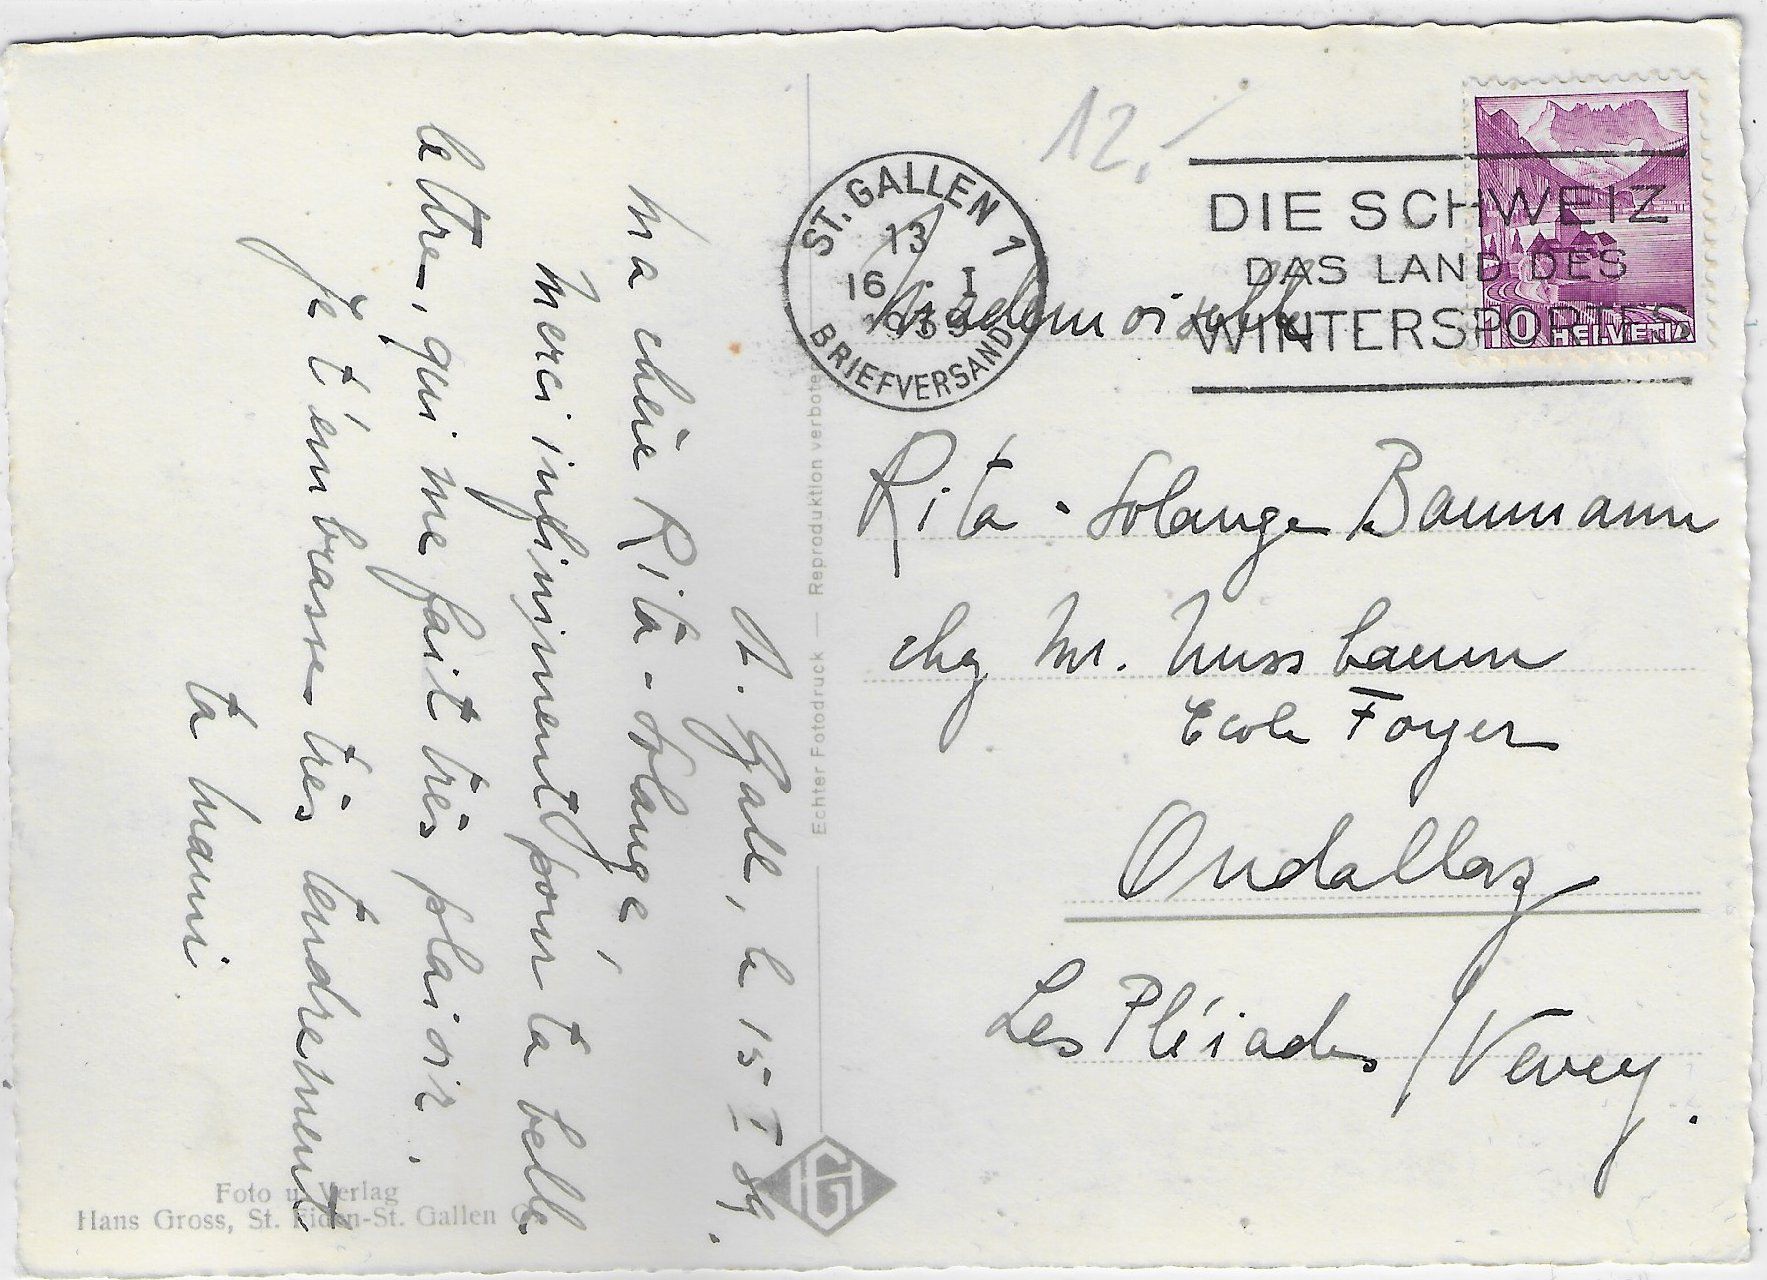 St. Gall, le 15 I 39.
Ma chère Rita-Solange,
Merci infiniment pour ta belle
lettre, qui me fait très plaisir.
Je t'embrasse très tendrement
ta mami
Foto u. Verlag
Hans Gross, St. Fiden-St. Gallen O.
Echter Fotodruck — Reproduktion verboten
HG
12.-
ST. GALLEN 1
13
16. I
1939
BRIEFVERSAND
DIE SCHWEIZ
DAS LAND DES
WINTERSPORTES
10 HELVETIA
Mademoiselle
Rita-Solange Baumann
chez Mr. Nussbaum
Ecole Foyer
Ondallaz
Les Pléiades / Vevey.